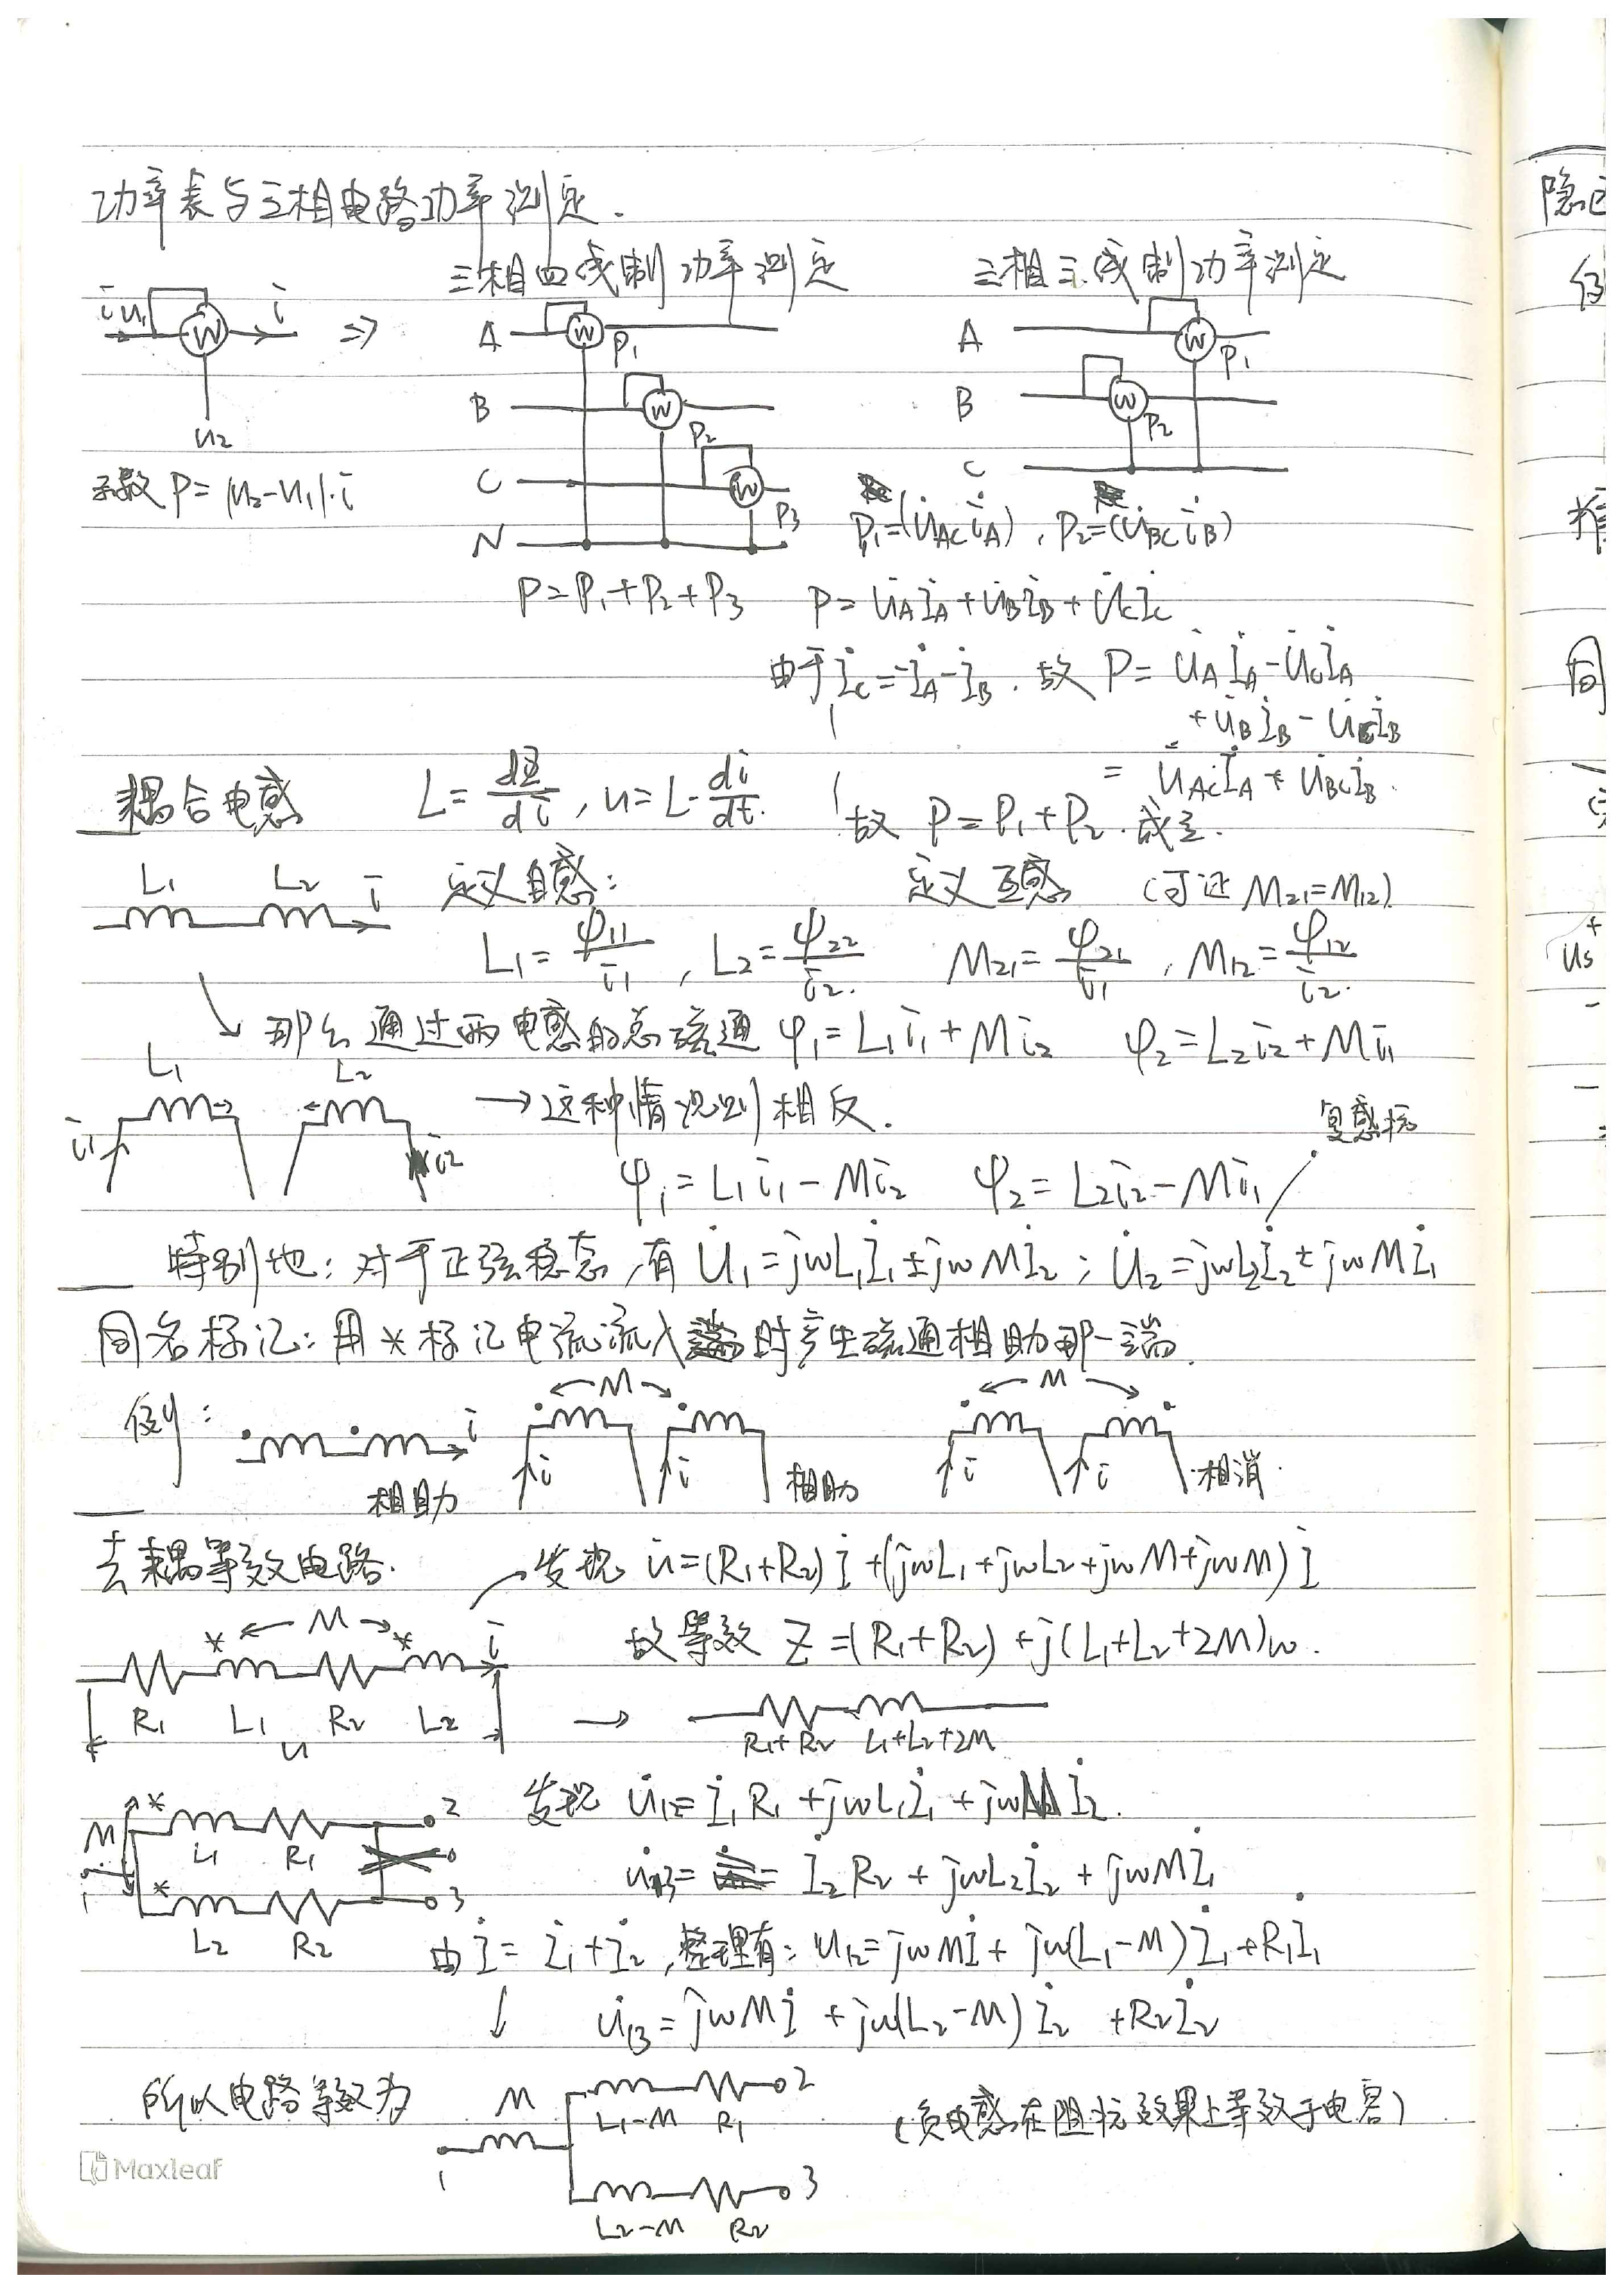 功率表与三相电路功率测定.
三相四线制功率测定
三相三线制功率测定
i u₁ W i ⇒
u₂
示数 P=|u₂-u₁|·i
A W P₁
B W P₂
C W P₃
N
P=P₁+P₂+P₃
A W P₁
B W P₂
C
P₁=(U̇AC İA), P₂=(U̇BC İB)
P=U̇AİA+U̇BİB+U̇CİC
由于İC=-İA-İB. 故 P= U̇AİA-U̇CİA
+U̇BİB-U̇CİB
= U̇ACİA+U̇BCİB.
故 P=P₁+P₂.成立.
耦合电感 L=dΦ/di, u=L·di/dt.
L₁ L₂ i
定义自感: 定义互感 (可证 M₂₁=M₁₂)
L₁=φ₁₁/i₁, L₂=φ₂₂/i₂. M₂₁=φ₂₁/i₁, M₁₂=φ₁₂/i₂.
↘ 那么通过两电感的总磁通 φ₁=L₁i₁+Mi₂ φ₂=L₂i₂+Mi₁
L₁ L₂
i₁ i₂
→这种情况则相反.
复感抗
φ₁=L₁i₁-Mi₂ φ₂=L₂i₂-Mi₁
特别地:对于正弦稳态,有 U̇₁=jωL₁İ₁±jωMİ₂; U̇₂=jωL₂İ₂±jωMİ₁
同名标记:用*标记电流流入端时产生磁通相助那一端.
例:
i 相助
M i i 相助
M i i 相消.
去耦等效电路.
发现 u̇=(R₁+R₂)İ+(jωL₁+jωL₂+jωM+jωM)İ
故等效 Z=(R₁+R₂)+j(L₁+L₂+2M)ω.
* M * i
R₁ L₁ R₂ L₂
u
→ R₁+R₂ L₁+L₂+2M
发现 u̇₁₂=İ₁R₁+jωL₁İ₁+jωMİ₂.
u̇₁₃=İ₂R₂+jωL₂İ₂+jωMİ₁
M * L₁ R₁ 2
1 * L₂ R₂ 3
由İ=İ₁+İ₂,整理有: u₁₂=jωMİ+jω(L₁-M)İ₁+R₁İ₁
↓ u̇₁₃=jωMİ+jω(L₂-M)İ₂+R₂İ₂
所以电路等效为
M L₁-M R₁ 2
1 L₂-M R₂ 3
(负电感在阻抗效果上等效于电容)
Maxleaf
隐
同
Us
+
-